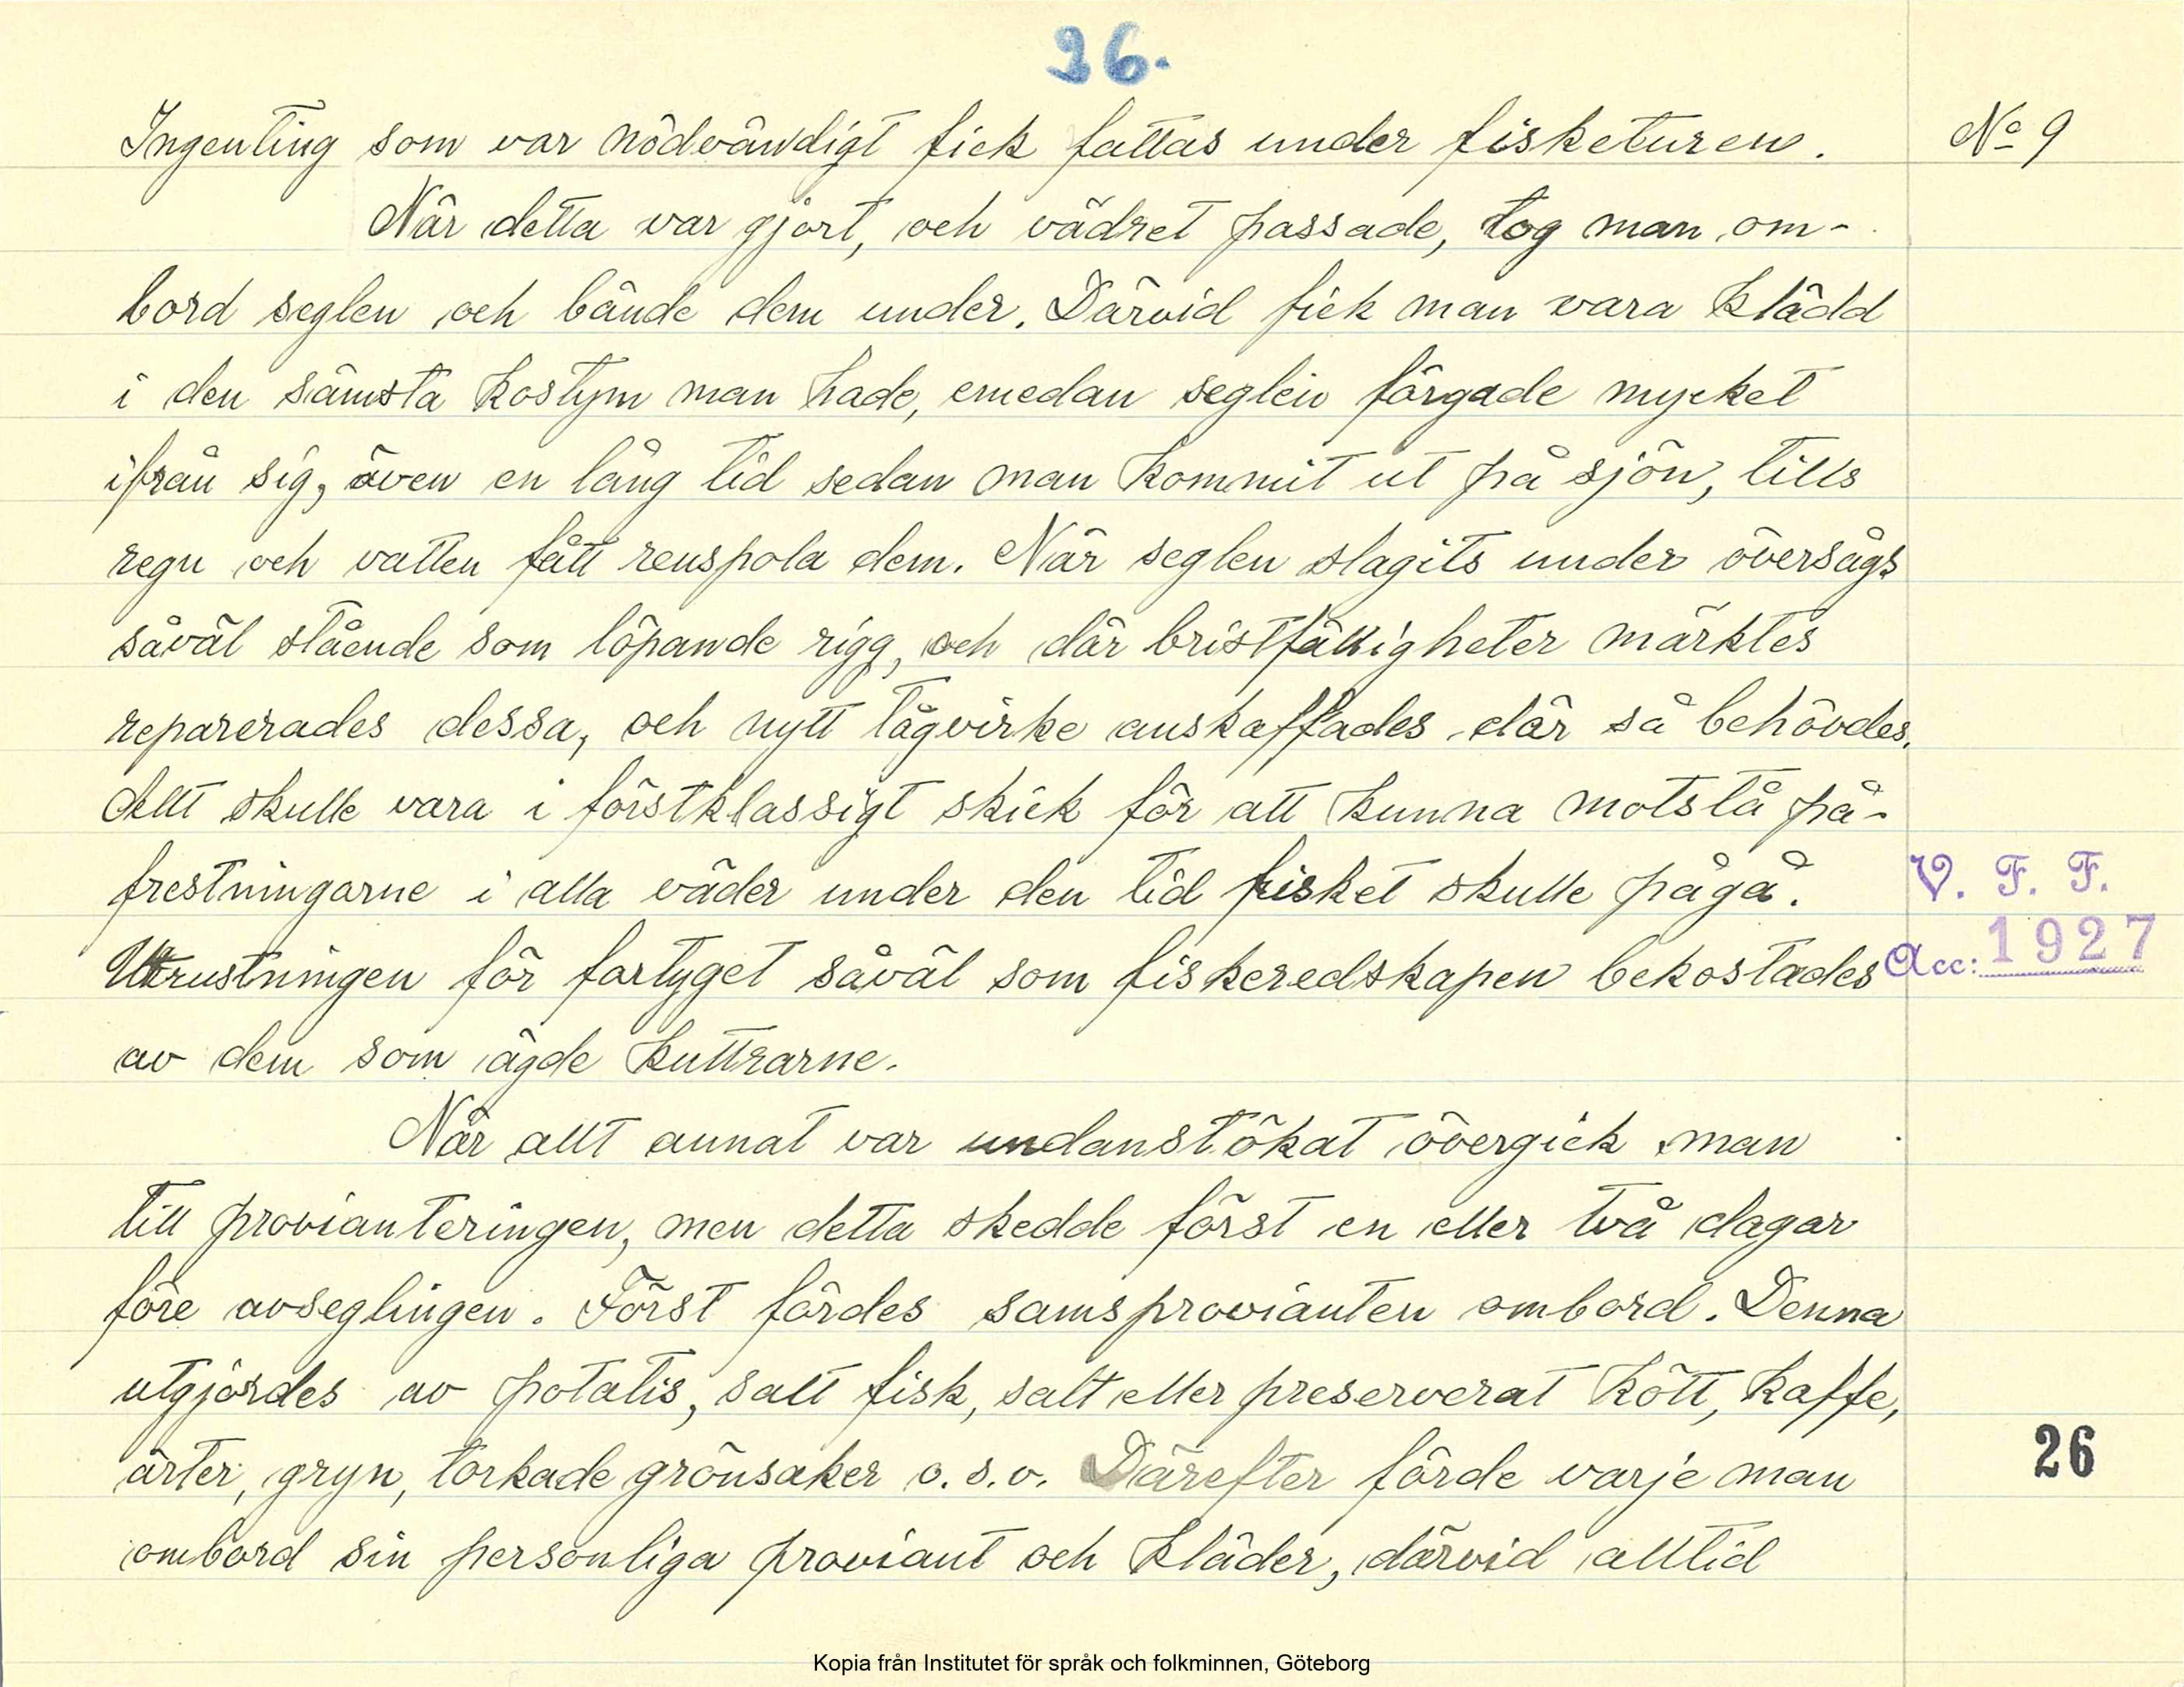 26.
Ingenting som var nödvändigt fick fattas under fisketuren.
No 9
När detta var gjort, och vädret passade, tog man om-
bord seglen och bände dem under. Därvid fick man vara klädd
i den sämsta kostym man hade, emedan seglen färgade mycket
ifrån sig, även en lång tid sedan man kommit ut på sjön, tills
regn och vatten fått renspola dem. När seglen slagits under översågs
såväl stående som löpande rigg, och där bristfälligheter märktes
reparerades dessa, och nytt tågvirke anskaffades där så behövdes.
Allt skulle vara i förstklassigt skick för att kunna motstå på-
frestningarne i alla väder under den tid fisket skulle pågå.
V. F. F.
Utrustningen för fartyget såväl som fiskeredskapen bekostades
Acc: 1927
av dem som ägde kuttrarne.
När allt annat var undanstökat övergick man
till provianteringen, men detta skedde först en eller två dagar
före avseglingen. Först fördes samsprovianten ombord. Denna
utgjordes av potatis, salt fisk, salt eller preserverat kött, kaffe,
ärter, gryn, torkade grönsaker o.s.v. Därefter förde varje man
26
ombord sin personliga proviant och kläder, därvid alltid
Kopia från Institutet för språk och folkminnen, Göteborg